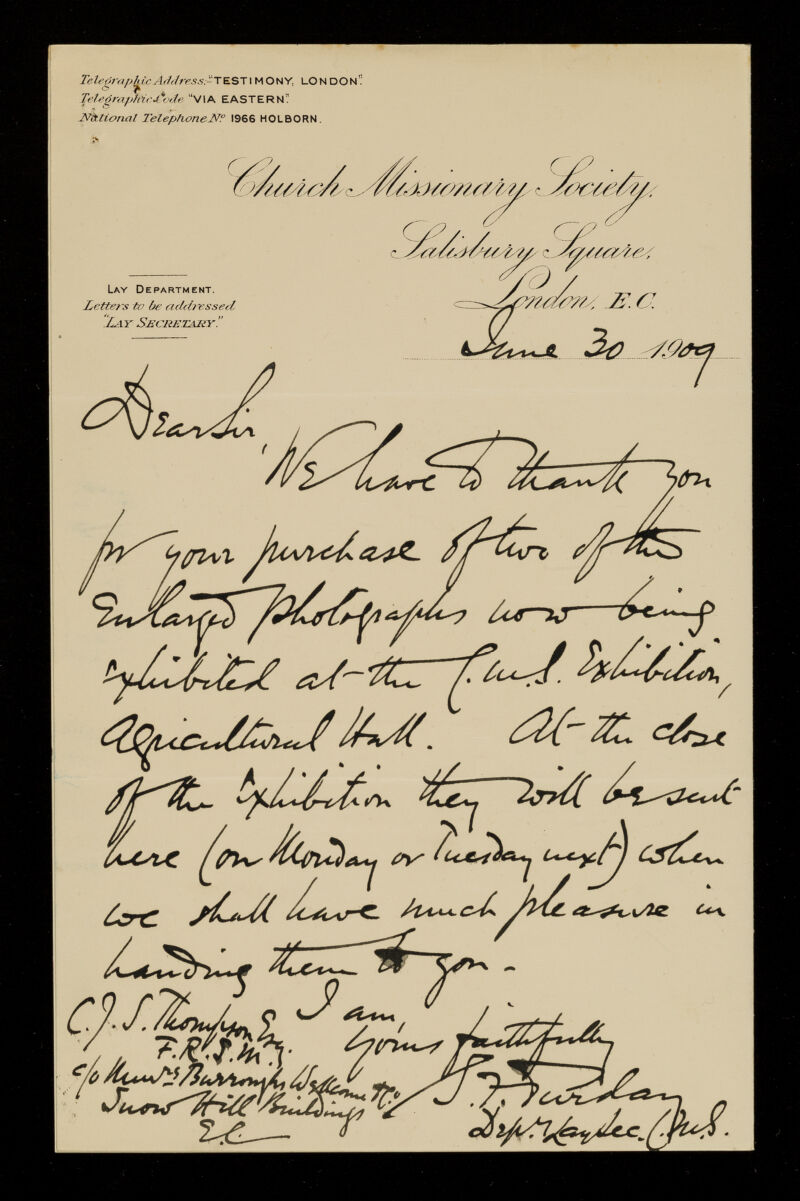 Telegraphic Address: "TESTIMONY, LONDON".
Telegraphic Code "VIA EASTERN".
National Telephone No. 1966 HOLBORN.
Church Missionary Society,
Salisbury Square,
London, E.C.
LAY DEPARTMENT.
Letters to be addressed
"LAY SECRETARY."
June 30 1909
Dear Sir,
We have to thank you
for your purchase of two of the
Enlarged Photographs now being
Exhibited at the C.M.S. Exhibition,
Agricultural Hall. At the close
of the Exhibition they will be sent
here (on Monday or Tuesday next) when
we shall have much pleasure in
handing them to you.
I am,
Yours faithfully
Depy. Lay Sec. C.M.S.
C. J. S. Thompson Esq.
F.R.S.M.
c/o Messrs Burroughs Wellcome & Co
Snow Hill Buildings
E.C.